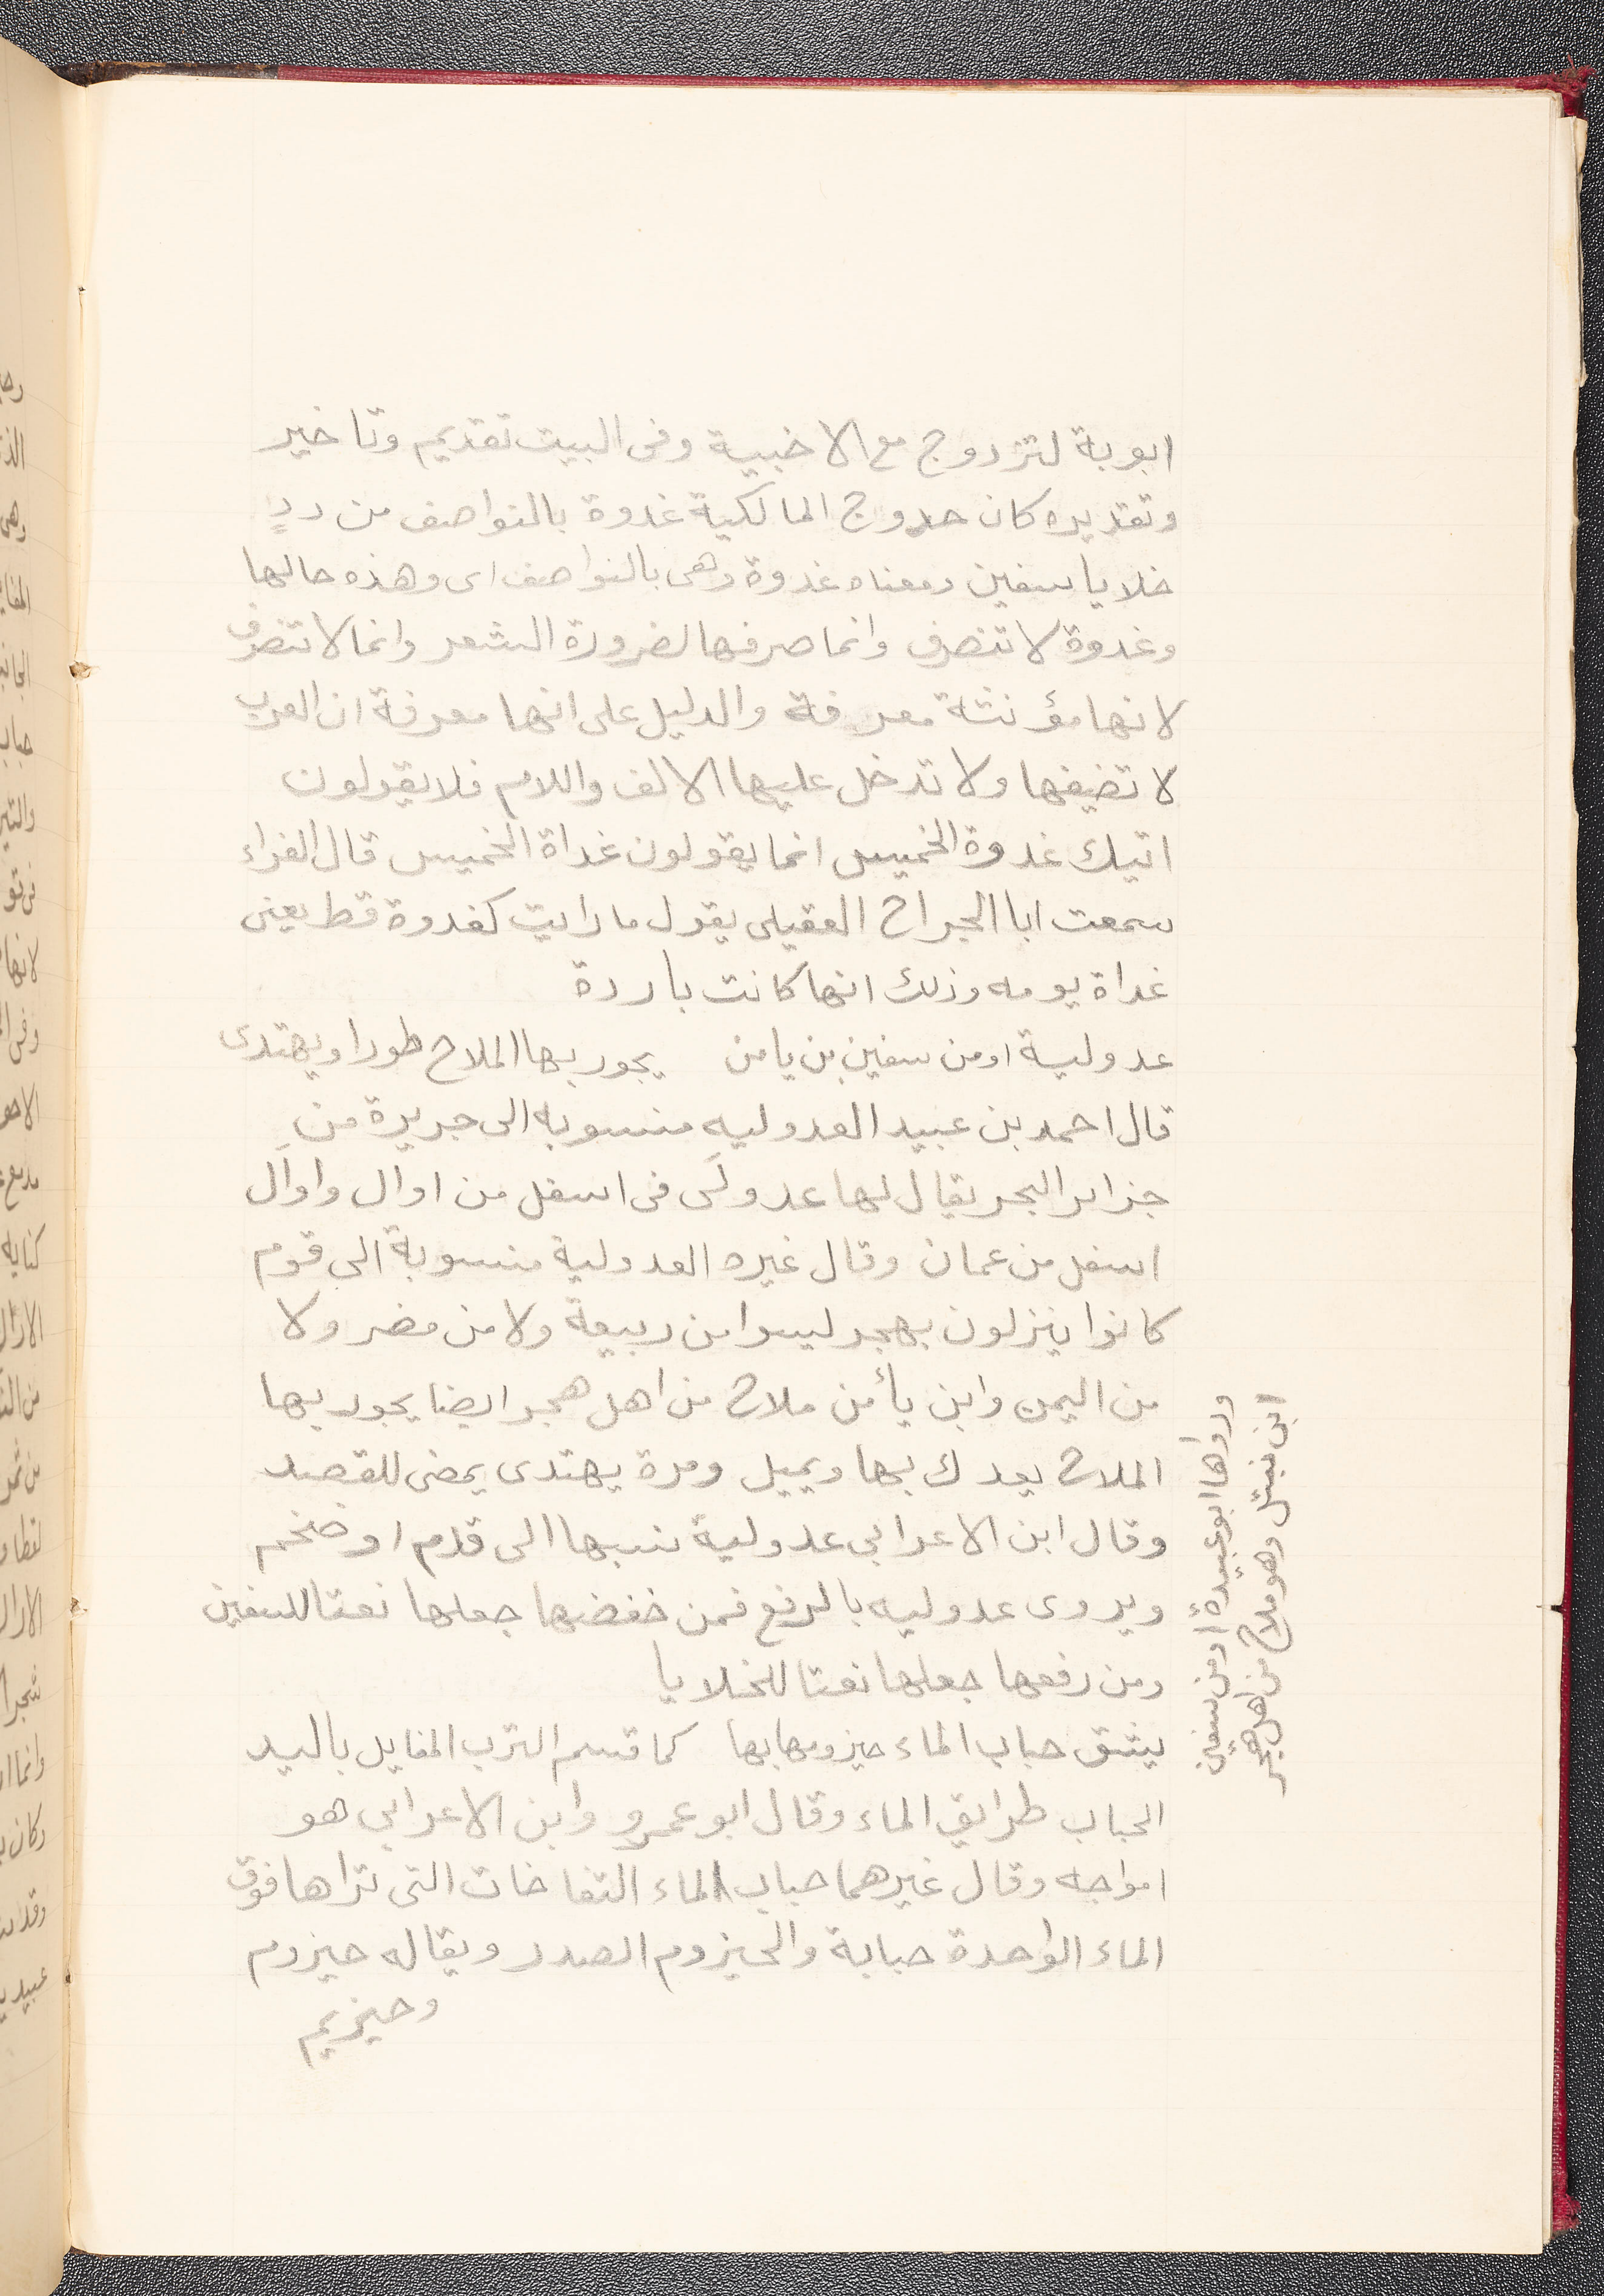 ابوبة لتزدوج مع الاخبية وفى البيت تقديم وتاخير
وتقديره كان حدوج المالكية غدوة بالنواصف من ددٍ
خلايا سفين ومعناه غدوة وهى بالنواصف اى وهذه حالها
وغدوة لا تنصرف وانما صرفها لضرورة الشعر وانما لا تنصرف
لانها مؤنثة معرفة والدليل على انها معرفة ان العرب
لا تضيفها ولا تدخل عليها الالف واللام فلا يقولون
اتيك غدوة الخميس انما يقولون غداة الخميس قال الفراء
سمعت ابا الجراح العقيلى يقول ما رايت كغدوة قط يعنى
غداة يومه وذلك انها كانت باردة
عدولية او من سفين بن يامن يجور بها الملاح طورا ويهتدى
قال احمد بن عبيد العدوليه منسوبه الى جزيرة من
جزاير البحر يقال لها عدولَى فى اسفل من اوال واوَال
اسفل من عمان وقال غيره العدولية منسوبة الى قوم
كانوا ينزلون بهجر ليسوا من ربيعة ولا من مضر ولا
من اليمن وابن يأمن ملاح من اهل هجر ايضا يجور بها
الملاح يعدل بها ويميل ومرة يهتدى يمضى للقصد
وقال ابن الاعرابى عدولية نسبها الى قدم او ضخم
ويروى عدوليه بالرفع فمن خفضها جعلها نعتا للسفين
ومن رفعها جعلها نعتا للخلايا
يشق حباب الماء حيزومها بها كما قسم الترب المفايل باليد
الحباب طرائق الماء وقال ابو عمرو وابن الاعرابى هو
امواجه وقال غيرهما حباب الماء النفاخات التى تراها فوق
الماء الواحدة حبابة والحيزوم الصدر ويقال له حيزوم
وحيزيم
ورواها ابو عبيدة او من سفين
ابن نبتل وهو ملاح من اهل هجر